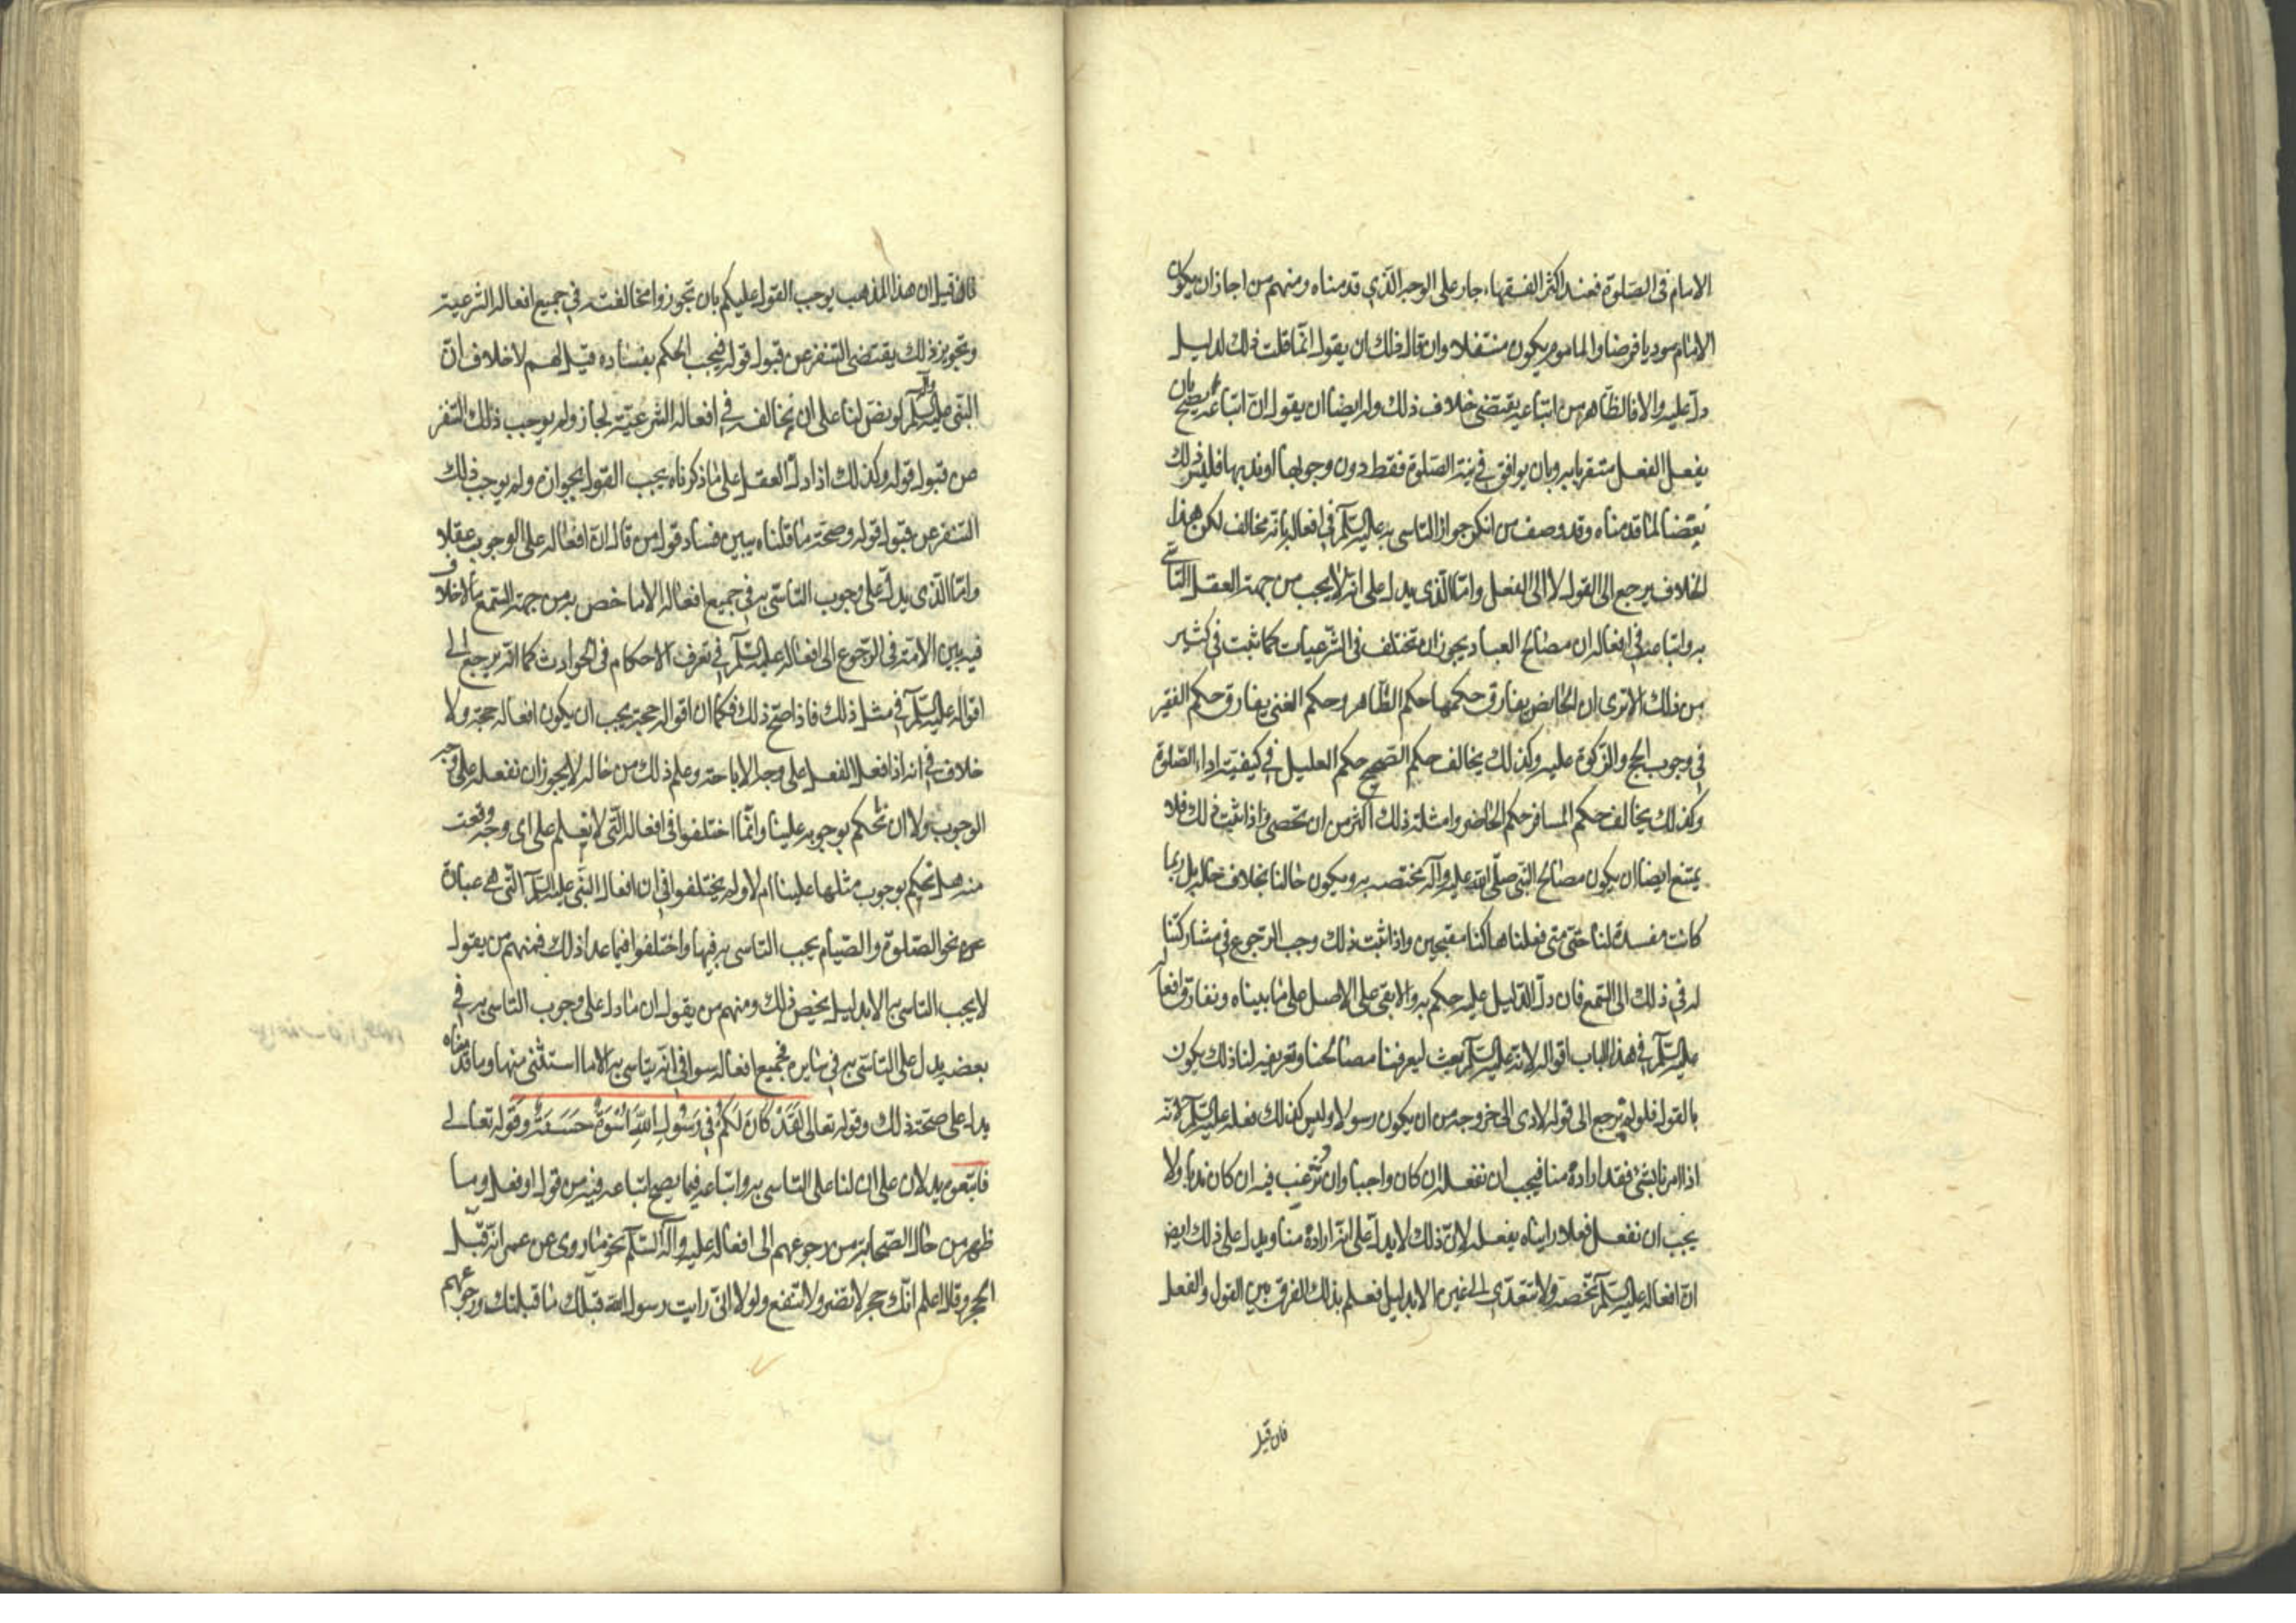 الامام فى الصّلوة فعند اكثر الفقهاء جار على الوجه الّذي قدمناه ومنهم من اجاز ان يكون
الامام موديا فرضا والماموم يكون متنفلا وان قال ذلك ان يقول انّما قلت ذلك لدليل
دلّ عليه والا فالظّاهر من اتباعه يقتضى خلاف ذلك وله ايضا ان يقول انّ اتباعه يصّح بان
يفعل الفعل متقربا به وبان يوافق في نية الصّلوة فقط دون وجوبها او ندبها فليس ذلك
نقضا لما قدمناه وقد وصف من انكر جواز التاسى به عليه السّلم فى افعاله بانّه مخالف لكن هذا
الخلاف يرجع الى القول لا الى الفعل وامّا الّذى يدل على انّه لا يجب من جهة العقل التاسّي
به واتباعه فى افعاله ان مصالح العباد يجوز ان تختلف فى الشّرعيات كما ثبت فى كثير
من ذلك الا ترى ان الحائض يفارق حكمها حكم الطّاهر وحكم الغنى يفارق حكم الفقير
في وجوب الحج والزكوة عليه وكذلك يخالف حكم الصّحيح حكم العليل في كيفيّة اداء الصّلوة
وكذلك يخالف حكم المسافر حكم الحاضر وامثلة ذلك اكثر من ان تحصى واذا ثبت ذلك فلا
يمتنع ايضا ان يكون مصالح النّبى صلّى الله عليه وآله يختصه به ويكون حالنا بخلاف حاله بل ربما
كانت مفسدة لنا حتّى متى فعلناها كنا مقبحين واذا ثبت ذلك وجب الرّجوع في مشاركتنا
له في ذلك الى السّمع فان دلّ الدّليل عليه حكم به والا بقى على الاصل على ما بيناه وتفارق افعاله
عليه السّلم فى هذا الباب اقواله لانّه عليه السّلم بعث ليعرفنا مصالحنا وتعريفه لنا ذلك يكون
بالقول فلو لم نرجع الى قوله لادى الى خروجه من ان يكون رسولا وليس كذلك فعله عليه السّلم لانّه
اذا امرنا بشئ فقد اراده منا فيجب ان نفعله ان كان واجبا وان نرغب فيه ان كان ندبا ولا
يجب ان نفعل فعلا رايناه يفعله لانّ ذلك لا يدلّ على انّه اراده منا ويدل على ذلك ايض
انّ افعاله عليه السّلم تخصه ولا تتعدّى الى غيره الا بدليل فعلم بذلك الفرق بين القول والفعل
فان قيل
فان قيل ان هذا المذهب يوجب القول عليكم بان تجوزوا مخالفته في جميع افعاله الشّرعية
وتجويز ذلك يقتضى التنفر عن قبول قوله فيجب الحكم بفساده قيل لهم لا خلاف انّ
النّبى عليه وآله السّلم لو نصّ لنا على ان نخالفه في افعاله الشرعيّة لجاز ولم يوجب ذلك التنفر
من قبول قوله وكذلك اذا دلّ العقل على ما ذكرناه يجب القول بجوازه ولم يوجب ذلك
التنفر عن قبول قوله وصحة ما قلناه يبين فساد قول من قال انّ افعاله على الوجوب عقلا
وامّا الّذى يدلّ على وجوب التاسّى به فى جميع افعاله الا ما خص به من جهة السّمع فلا خلاف
فيه بين الامّة فى الرّجوع الى افعاله عليه السّلم في تعرف الاحكام فى الحوادث كما انّه يرجع الى
اقواله عليه السّلم في مثل ذلك فاذا صحّ ذلك فكما ان اقواله حجة يجب ان يكون افعاله حجة ولا
خلاف في انه اذا فعل الفعل على وجه الاباحة وعلم ذلك من حاله لا يجوز ان نفعله على وجه
الوجوب ولا ان نحكم بوجوبه علينا وانّما اختلفوا فى افعاله الّتى لا نعلم على اى وجه وقعت
منه هل نحكم بوجوب مثلها علينا ام لا ولم يختلفوا في ان افعال النّبى عليه السّلم الّتى هي عبادة
نحو الصّلوة والصّيام يجب التاسى به فيها واختلفوا فيما عدا ذلك فمنهم من يقول
لا يجب التاسى به الا بدليل يخص ذلك ومنهم من يقول ان ما دل على وجوب التاسى به في
بعضه يدل على التاسّى به في سايره فجميع افعاله سوا في انّه يتاسى به الا ما استثنى منها وما قدمناه
يدل على صحة ذلك وقوله تعالى لَقَدْ كَانَ لَكُمْ فِى رَسُولِ اللهِ اُسْوَةٌ حَسَنَةٌ وقوله تعالى
فاتبعوه يدلان على ان لنا على التاسى به واتباعه فيما يصح اتباعه فيه من قول او فعل وما
ظهر من حال الصّحابة من رجوعهم الى افعاله عليه وآله السّلم نحو ما روى عن عمر انّه قبّل
الحجر وقال اعلم انّك حجر لا تضر ولا تنفع ولولا انّى رايت رسول الله قبلك ما قبلتك ورجوعهم